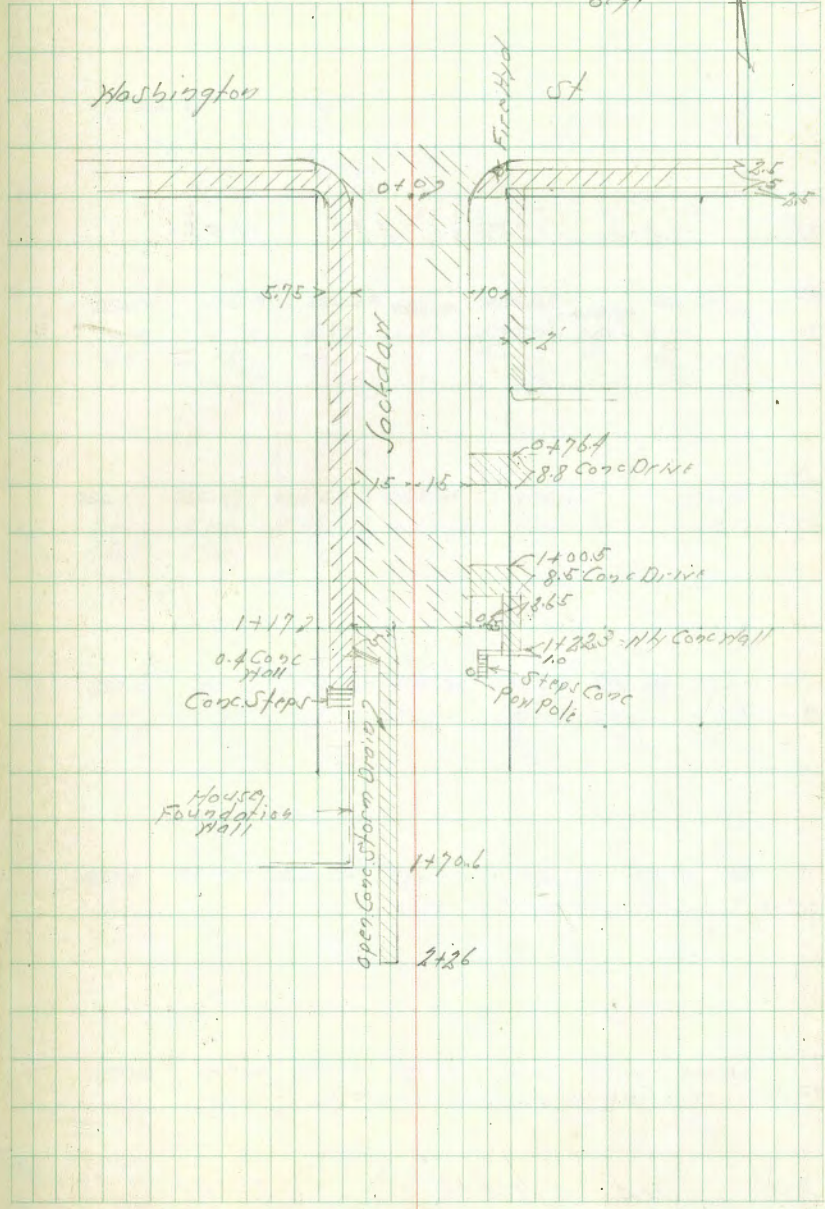 Washington St.
Fire Hyd
0+00
2.5
1.5
2.5
5.75
10
2'
Jackdaw
0+76.4
8.8 Conc Drive
15 15
1+00.5
8.5 Conc Drive
1+17.2
0.4 Conc
Wall
Conc. Steps
1+22.3 - NLy Conc Wall
1.0
Steps Conc
Pow Pole
House
Foundation
Wall
open Conc. Storm Drain
1+70.6
2+26